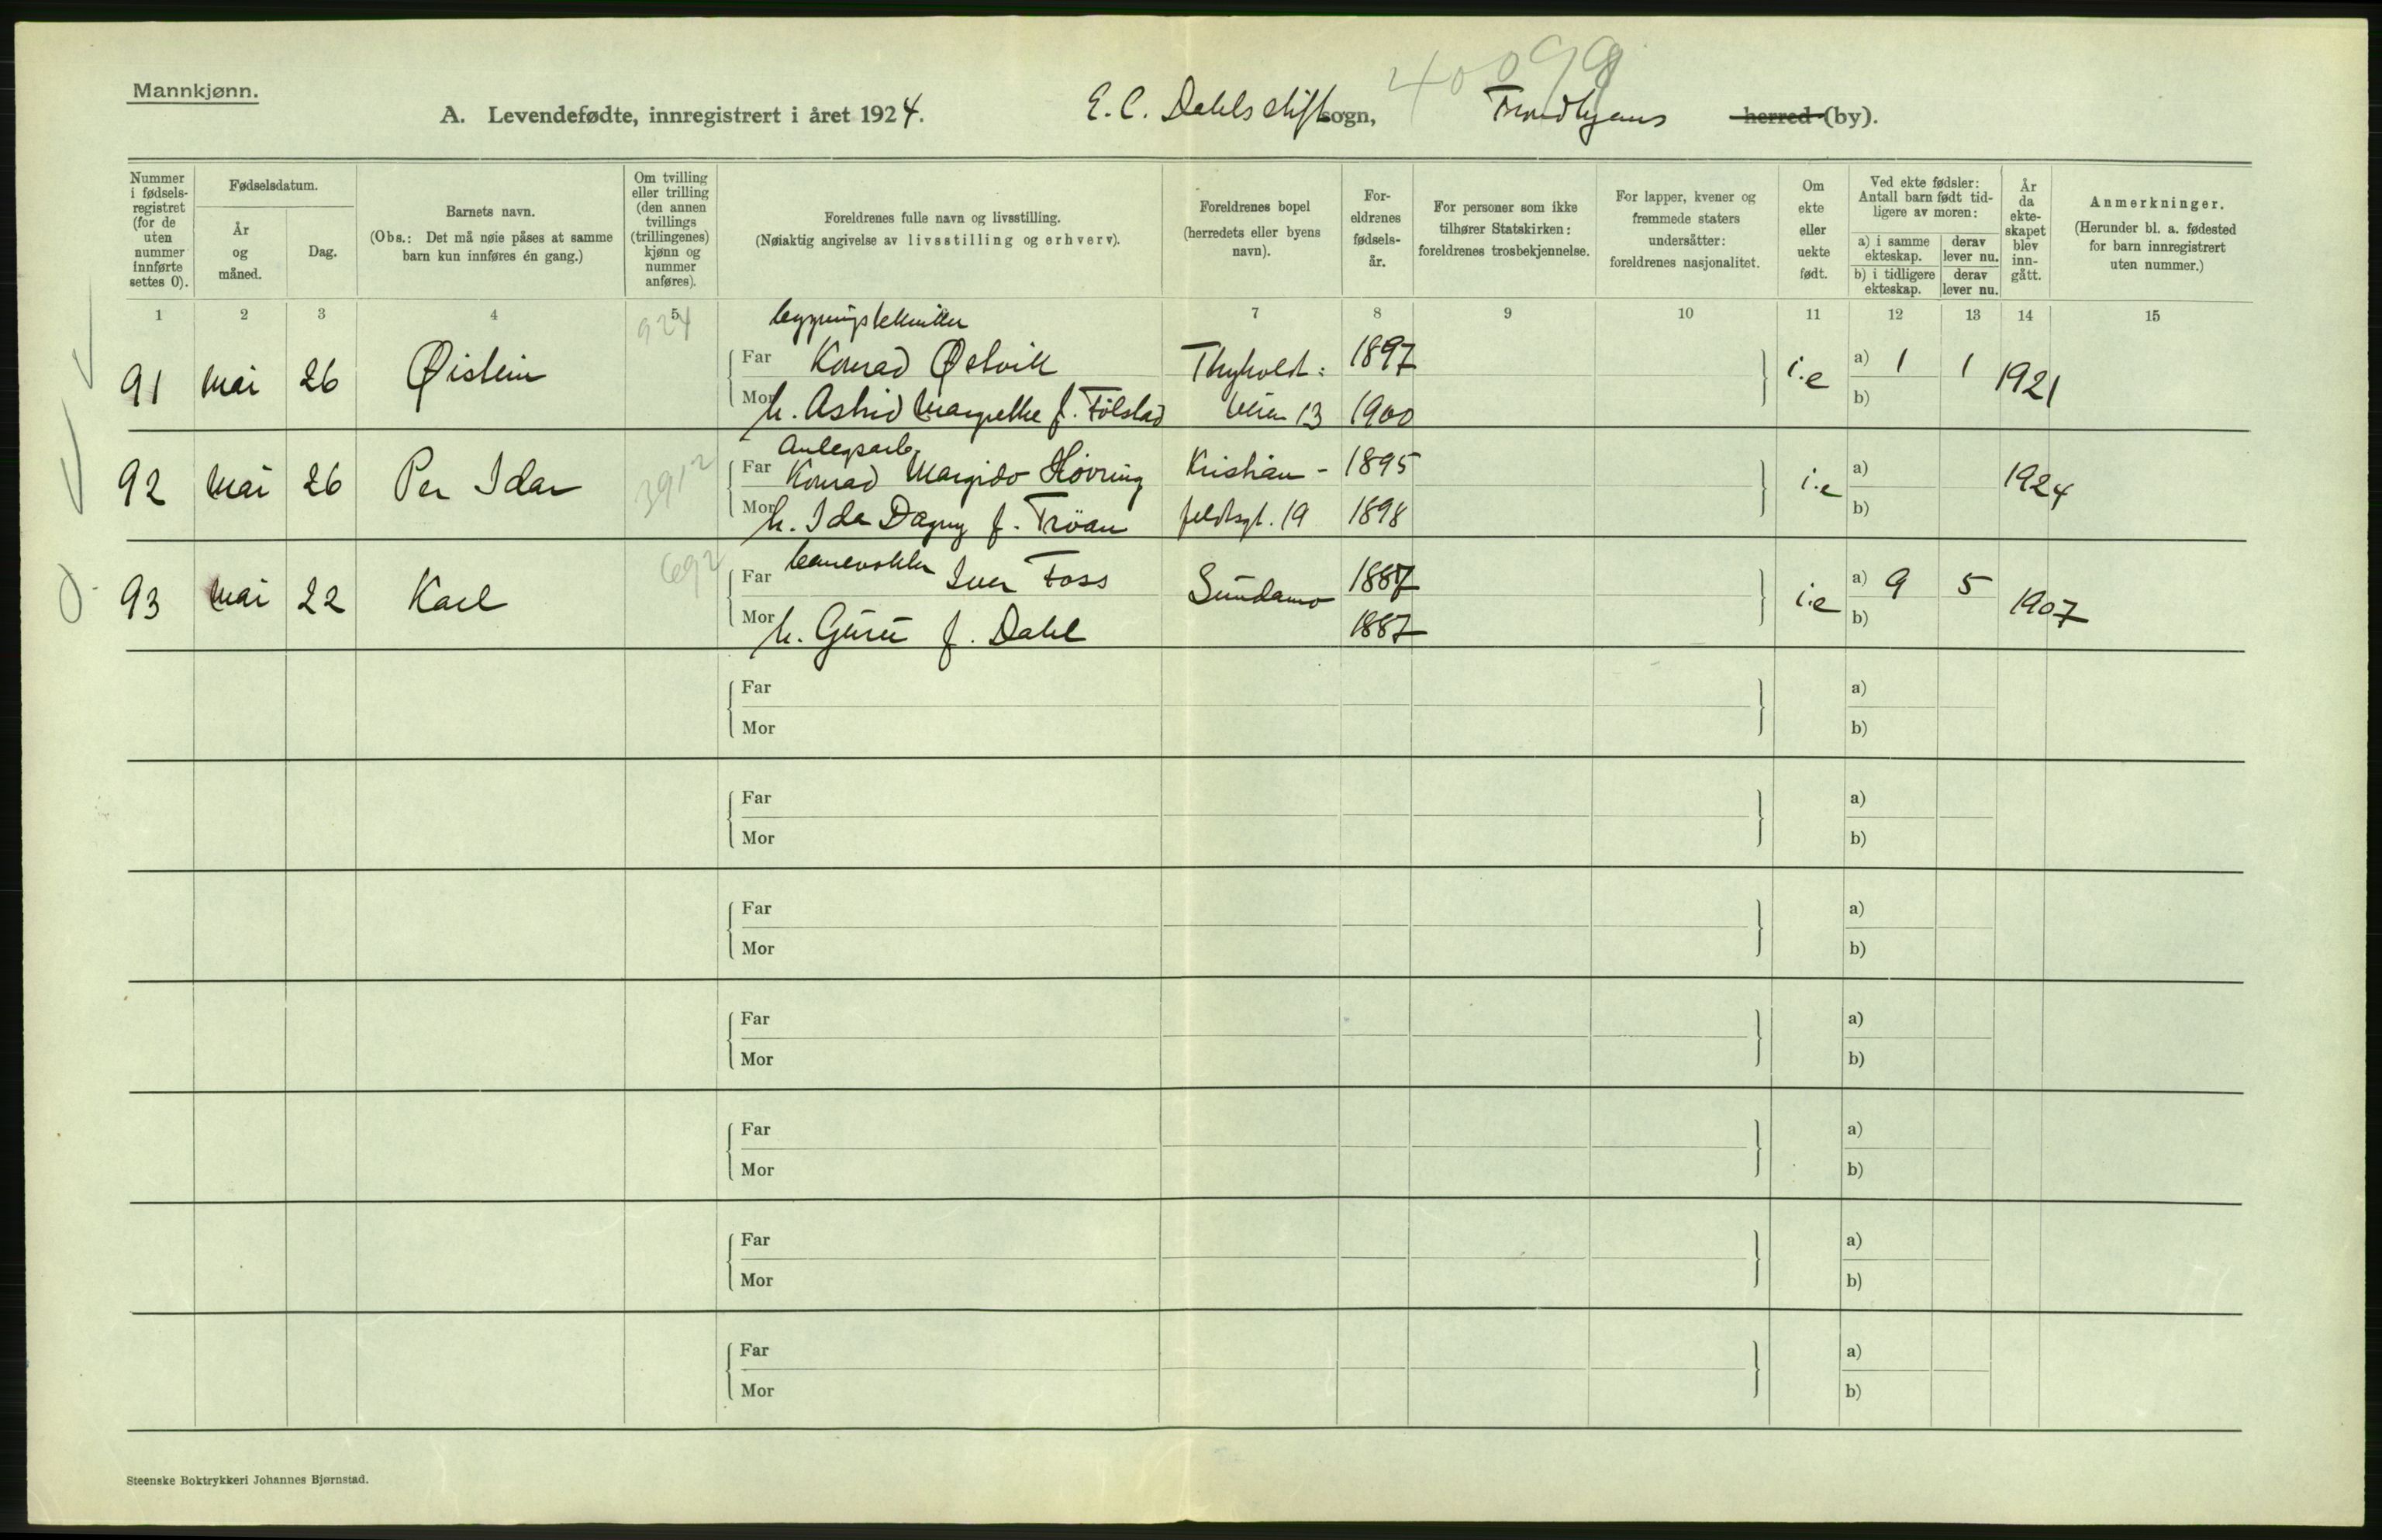 40099
Mannkjønn.
A. Levendefødte, innregistrert i året 1924. E. C. Dahls stift sogn, Trondhjems herred (by).
Nummer i fødsels-registret (for de uten nummer innførte settes 0).
Fødselsdatum.
År og måned.
Dag.
Barnets navn.
(Obs.: Det må nøie påses at samme barn kun innføres én gang.)
Om tvilling eller trilling (den annen tvillings (trillingenes) kjønn og nummer anføres).
Foreldrenes fulle navn og livsstilling.
(Nøiaktig angivelse av livsstilling og erhverv).
Foreldrenes bopel (herredets eller byens navn).
For-eldrenes fødsels-år.
For personer som ikke tilhører Statskirken: foreldrenes trosbekjennelse.
For lapper, kvener og fremmede staters undersåtter: foreldrenes nasjonalitet.
Om ekte eller uekte født.
Ved ekte fødsler: Antall barn født tid-ligere av moren:
a) i samme ekteskap. derav lever nu.
b) i tidligere ekteskap. derav lever nu.
År da ekte-skapet blev inn-gått.
Anmerkninger.
(Herunder bl. a. fødested for barn innregistrert uten nummer.)
1 2 3 4 5 7 8 9 10 11 12 13 14 15
924
bygningstekniker
91 Mai 26 Øistein Far Konrad Østvik Thyholt: 1897 i.e a) 1 1 1921
Mor h. Astrid Margrethe f. Tølstad veien 13 1900 b)
Anlegsarb.
92 Mai 26 Per Idar 3912 Far Konrad Margido Hövring Kristian- 1895 i.e a) 1924
Mor h. Ida Dagny f. Tröan feldtsgt. 19 1898 b)
93 Mai 22 Karl 692 Far banevokter Iver Foss Sundamo 1887 i.e a) 9 5 1907
Mor h. Guru f. Dahl 1887 b)
Far a)
Mor b)
Far a)
Mor b)
Far a)
Mor b)
Far a)
Mor b)
Far a)
Mor b)
Far a)
Mor b)
Far a)
Mor b)
Steenske Boktrykkeri Johannes Bjørnstad.